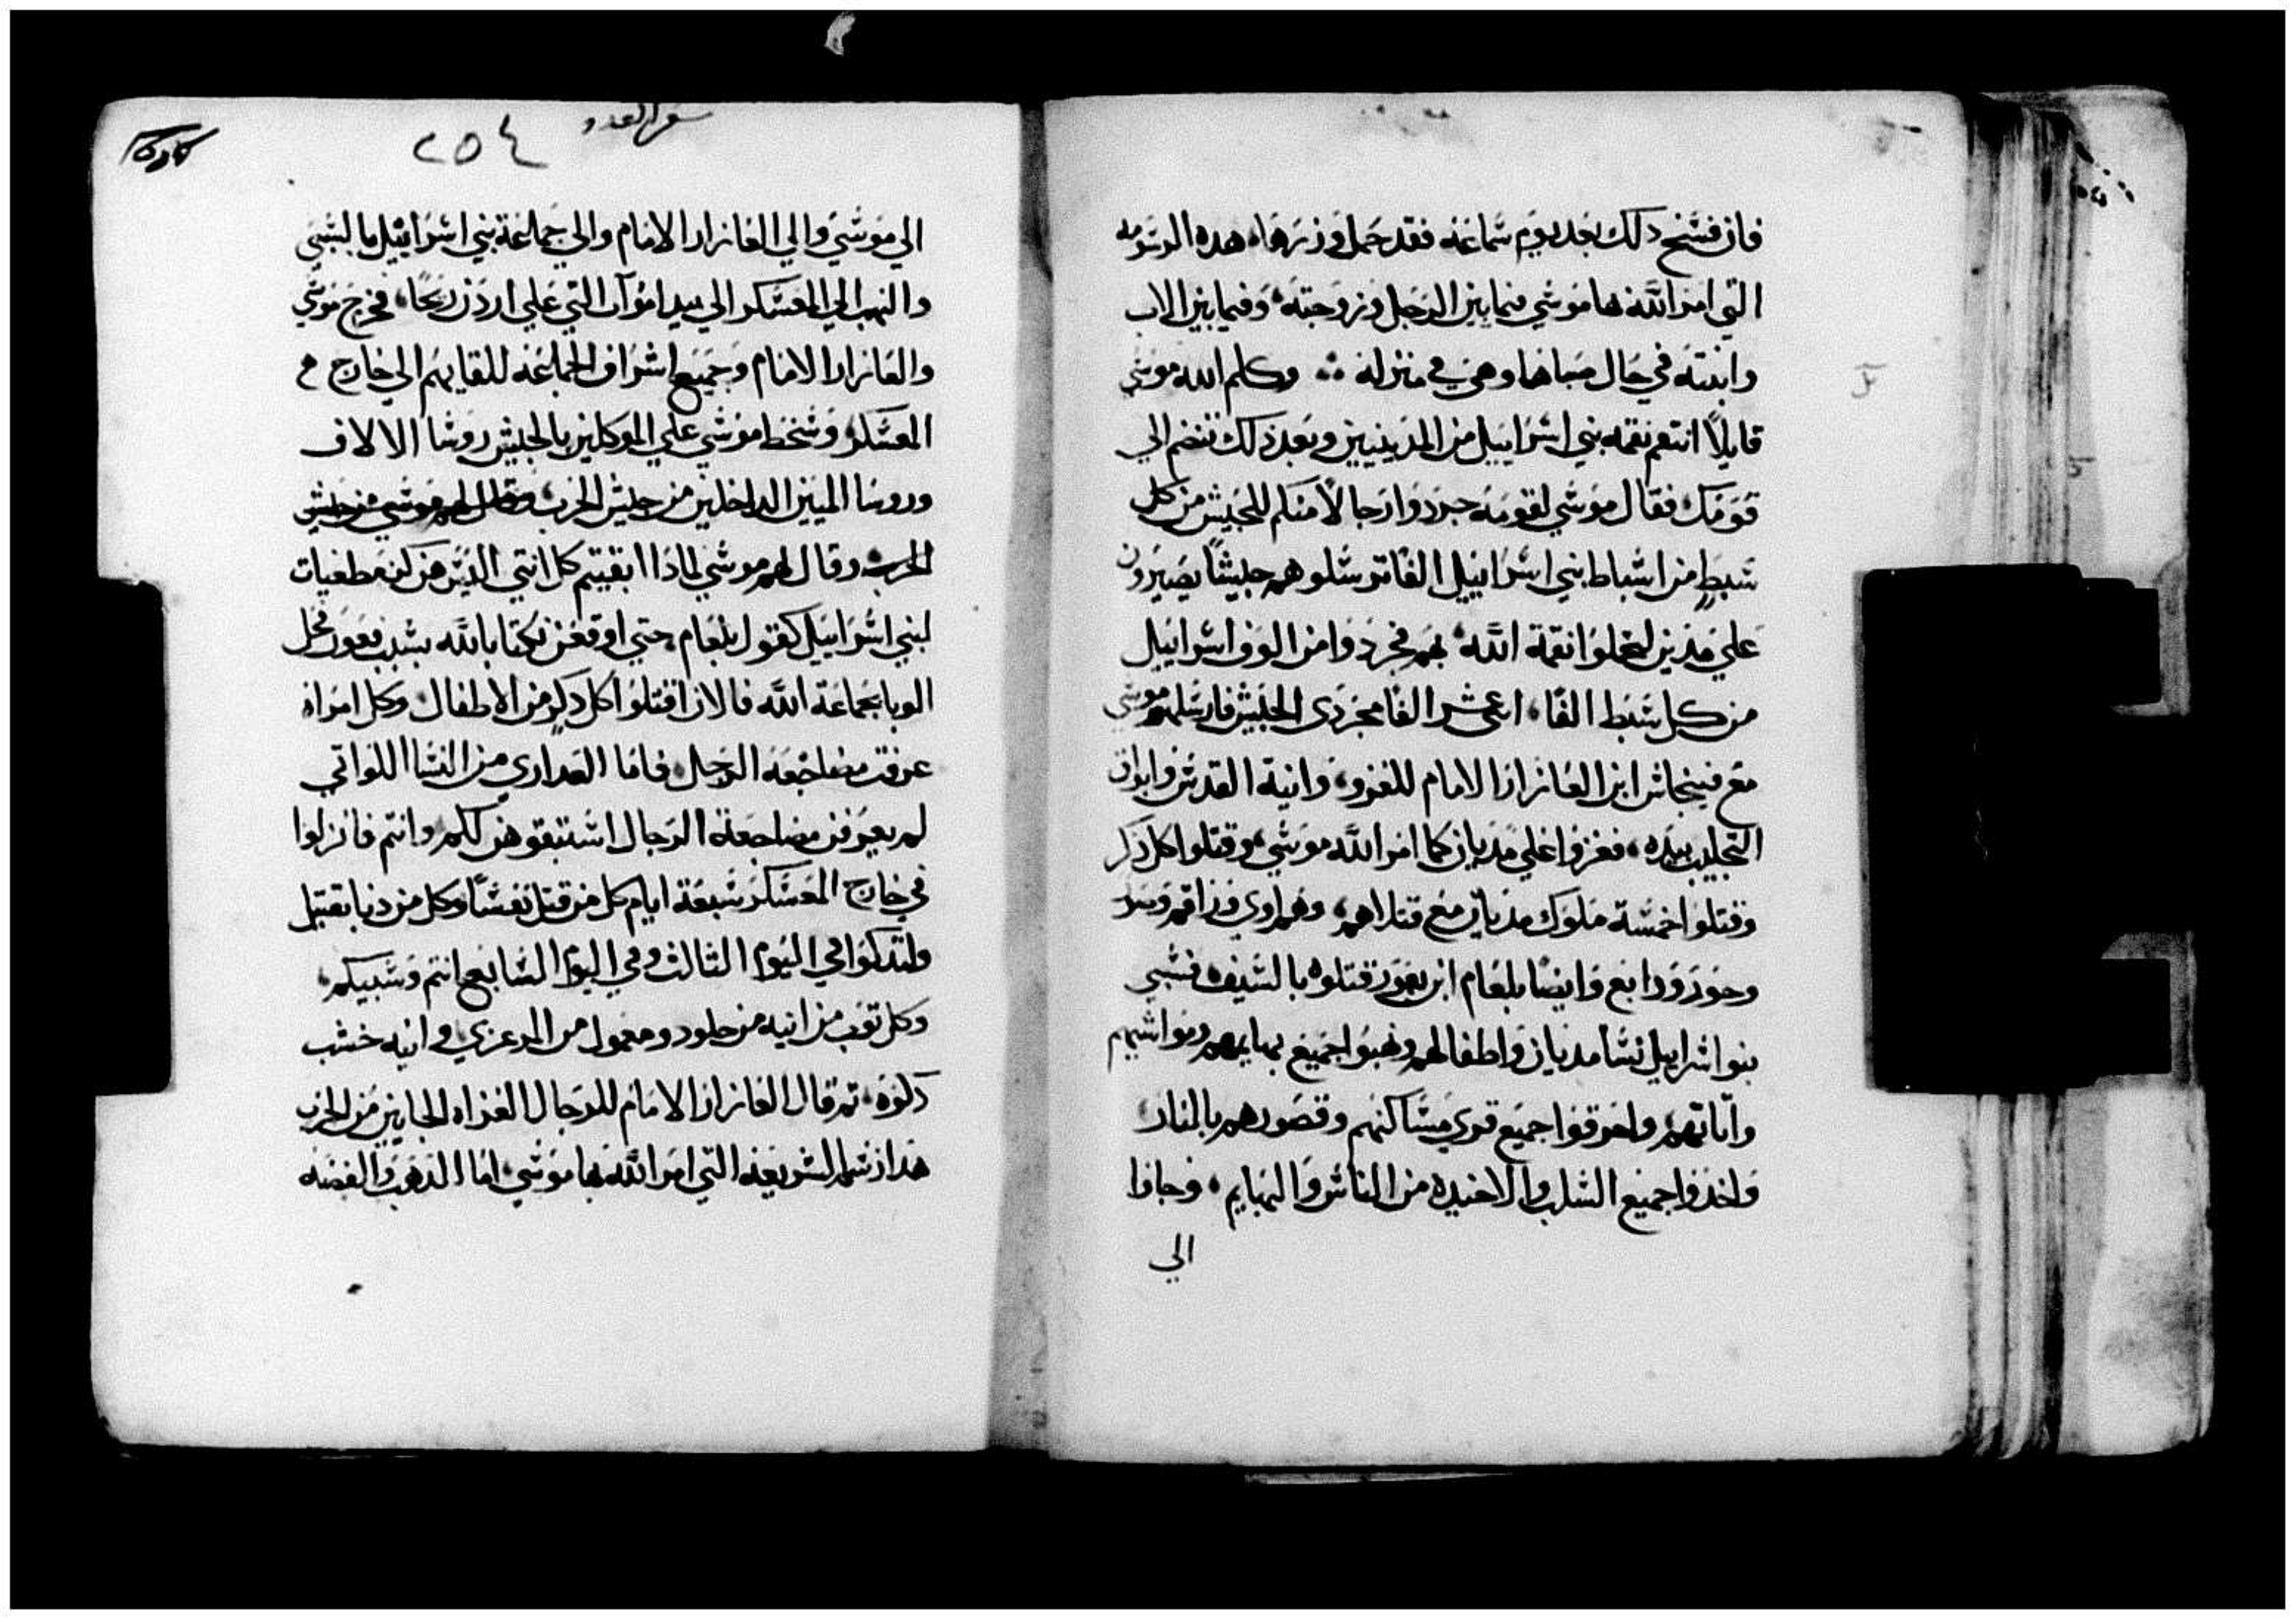 فان فسخ دلك بعد يوم سماعه فقد حمل وزرها، هده الرسوم
التي امر الله بها موسي فيما بين الرجل وزوجته، وفيما بين الاب
وابنته في حال صباها وهي في منزله ∴ وكلم الله موسي
قايلاً انتقم نقمه بني اسراييل من المدينيين وبعد ذلك تنضم الي
قومك، فقال موسي لقومه جردوا رجالاً منكم للجيش من كل
سبط من اسباط بني اسراييل الفًا ترسلوهم جيشًا يصيرون
علي مدين ليحلوا نقمة الله بهم فجردوا من الوف اسراييل
من كل سبط الفًا، اعشر الفا مجردي الجيش فارسلهم موسي
مع فينحاس ابن العازار الامام للغزو، وانية القدس وابواق
التجليب بيده، فغزوا علي مديان كما امر الله موسي، وقتلوا كل ذكر
وقتلوا خمسة ملوك مديان مع قتلاهم، وهم اوي ورزاقم وصور
وحور ورابع وايضًا بلعام ابن بعور قتلوه بالسيف فسبي
بنوا اسراييل نسا مديان واطفالهم ونهبوا جميع بهايمهم ومواشيهم
واتاتهم، واحرقوا جميع قري مساكنهم وقصورهم بالنار
واخذوا جميع السلب والاخيده من الناس والبهايم، وجاوا
الي
سفر العدد
٢٥٤
الي موسي والي العازار الامام والي جماعة بني اسراييل بالسبي
والنهب الي المعسكر الي بيدا مواب التي علي اردن ريحا، فخرج موسي
والعازار الامام وجميع اشراف الجماعه للقايهم الي خارج
المعسكر، وسخط موسي علي الموكلين بالجيش روسا الالاف
وروسا الميين الداخلين من جيش الحرب وقال لهم موسي من جيش
الحرب وقال لهم موسي لماذا ابقيتم كل انتي الديس هن كن مطغيات
لبني اسراييل كقول بلعام، حتي اوقعن نكتا بالله بسبب فعور فحل
الوبا بجماعة الله فالان اقتلوا كل دكر من الاطفال وكل امراه
عرفت مضاجعه الرجال، فاما العداري من النسا اللواتي
لم يعرفن مضاجعة الرجال استبقوهن لكم، وانتم فانزلوا
في خارج المعسكر سبعة ايام كل من قتل نفسًا وكل من دنا بقتيل
ولتدكوا في اليوم الثالث وفي اليوم السابع انتم وسبيكم،
وكل توب من انيه من جلود ومعمول من المرعزي وانيه خشب
دكوه، تم قال العازار الامام للرجال الغزاه الجايين من الحرب
هدا رسم الشريعه التي امر الله بها موسي، اما الدهب والفضه